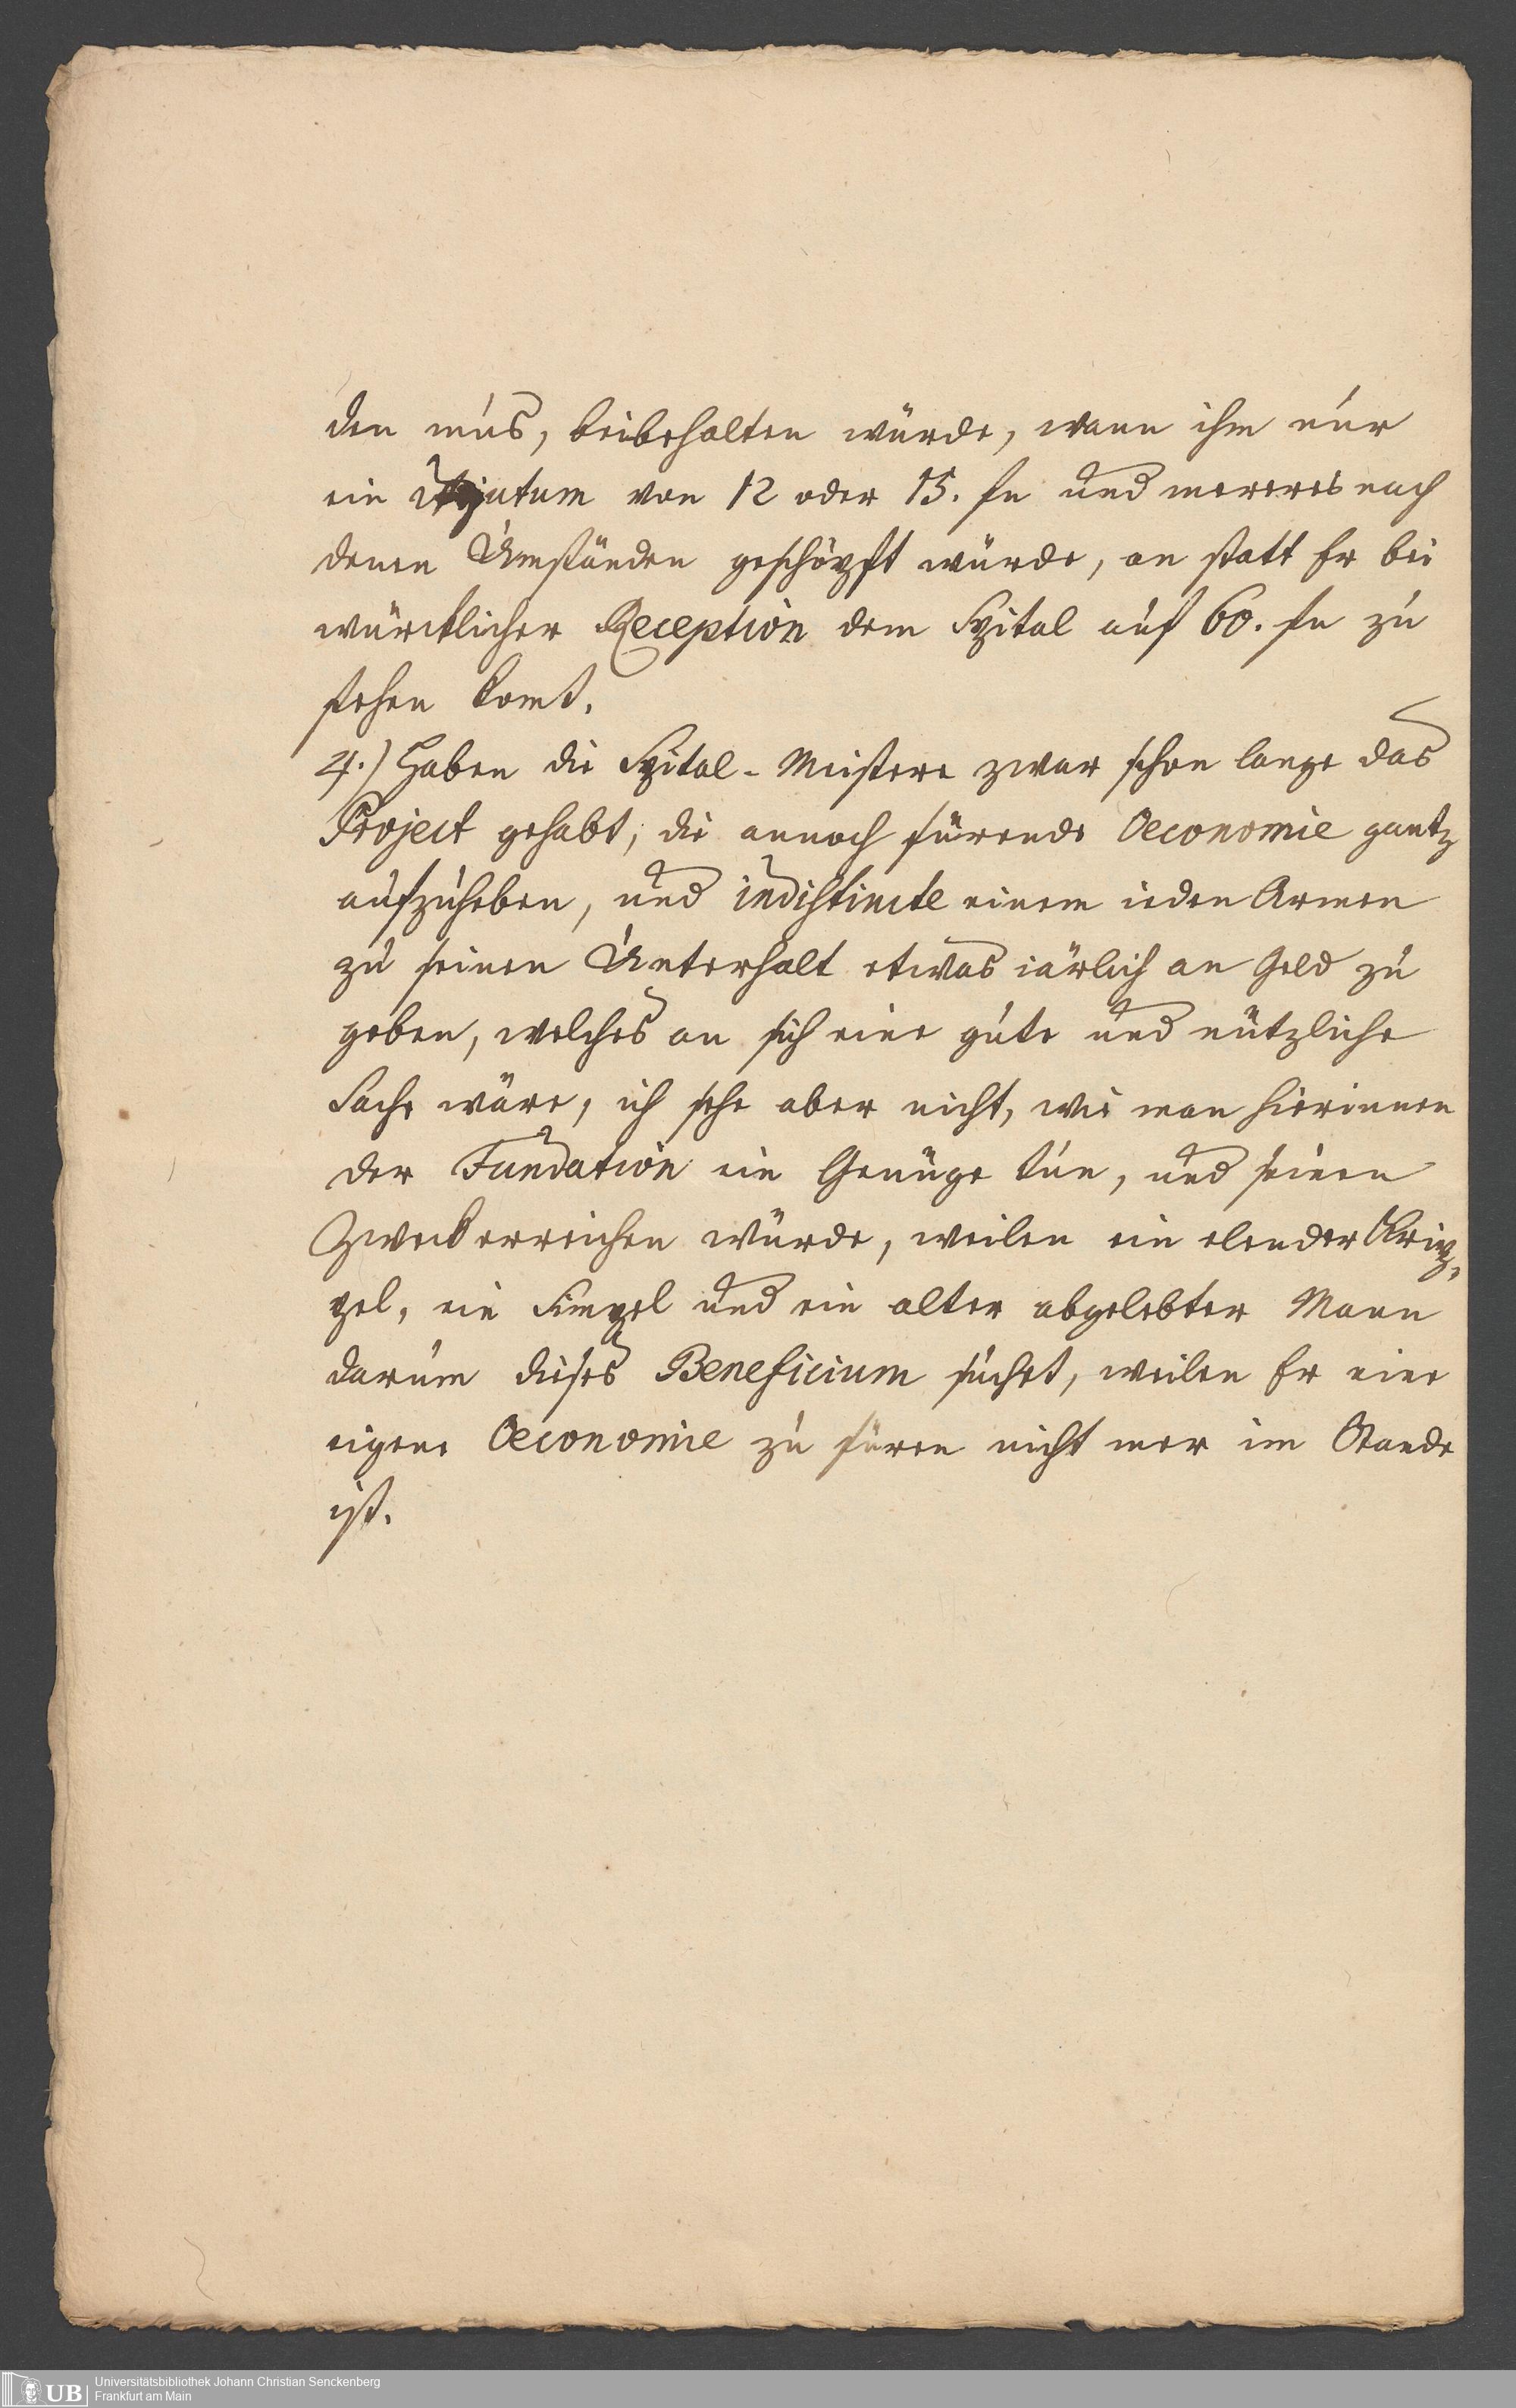 den mus, beibehalten würde, wann ihm nur
ein Adjutum von 12 oder 15. fn und mereres nach
denen Umständen geschöpft würde, an statt Er bei
würcklicher Reception dem Spital auf 60. fn zu
stehen komt.
4.) Haben die Spital-Meistere zwar schon lange das
Project gehabt, die annoch fürende Oeconomie gantz
aufzuheben, und indistincte einem ieden Armen
zu seinen Unterhalt etwas iärlich an Geld zu
geben, welches an sich eine gute und nützliche
Sache wäre, ich sehe aber nicht, wie man hierinnen
der Fundation ein Genüge tun, und seinen
Zweck erreichen würde, weilen ein elender Krip,
pel, ein Simpel und ein alter abgelebter Mann
darum dieses Beneficium suchet, weilen Er eine
eigene Oeconomie zu füren nicht mer im Stande
ist.
UB Universitätsbibliothek Johann Christian Senckenberg
Frankfurt am Main